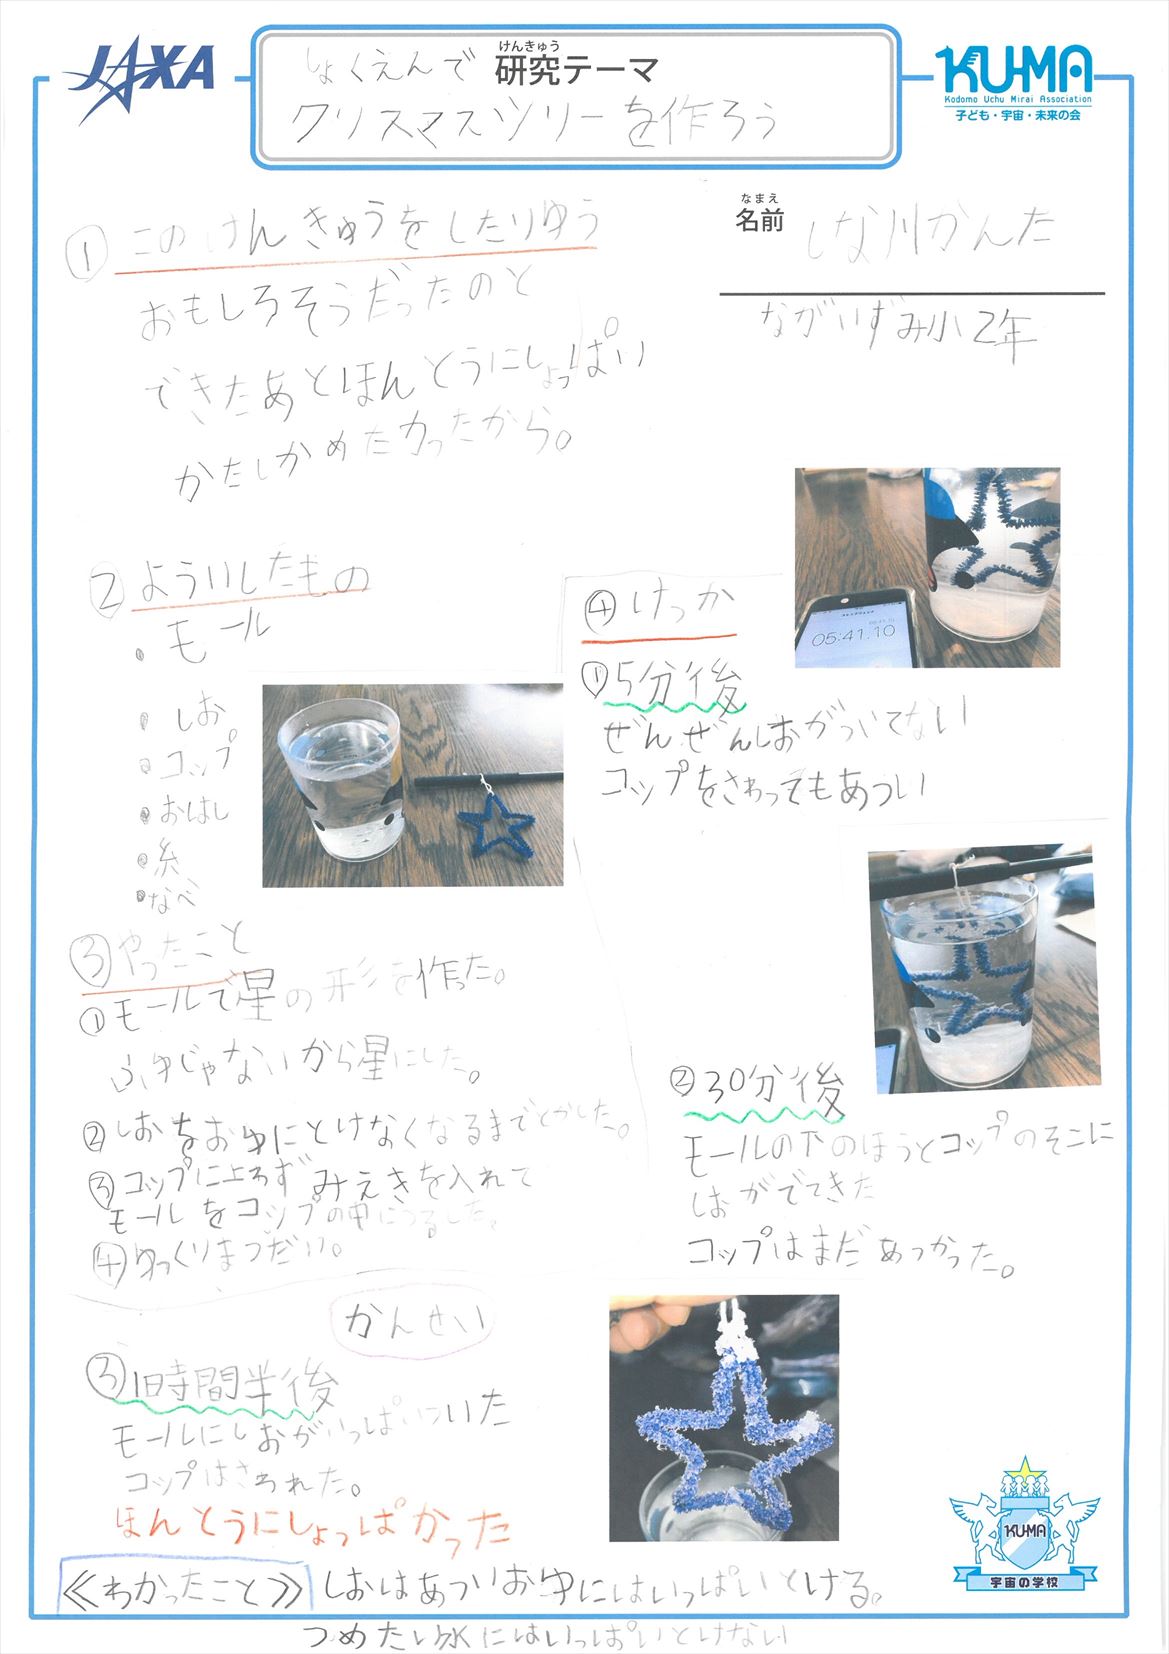 JAXA
しょくえんで
けんきゅう
研究テーマ
クリスマスツリーを作ろう
KU-MA
Kodomo Uchu Mirai Association
子ども・宇宙・未来の会
なまえ
名前
しな川かんた
ながいずみ小2年
① このけんきゅうをしたりゆう
おもしろそうだったのと
できたあとほんとうにしょっぱい
かたしかめたかったから。
② よういしたもの
・モール
・しお
・コップ
・おはし
・糸
・なべ
③ やったこと
①モールで星の形を作った。
ふゆじゃないから星にした。
②しおをおゆにとけなくなるまでとかした。
③コップに上わずみえきを入れて
モールをコップの中につるした。
④ゆっくりまつだけ。
④ けっか
05:41.10
①5分後
ぜんぜんしおがついてない
コップをさわってもあつい
②30分後
モールの下のほうとコップのそこに
しおがでてきた
コップはまだあつかった。
かんせい
③1時間半後
モールにしおがいっぱいついた
コップはさわれた。
ほんとうにしょっぱかった
≪わかったこと≫ しおはあついおゆにはいっぱいとける。
つめたい水にはいっぱいとけない
KU-MA
宇宙の学校